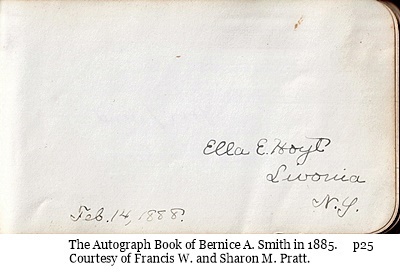 Ella E. Hoyt
Livonia
N.Y.
Feb. 14, 1888.
The Autograph Book of Bernice A. Smith in 1885. p25
Courtesy of Francis W. and Sharon M. Pratt.